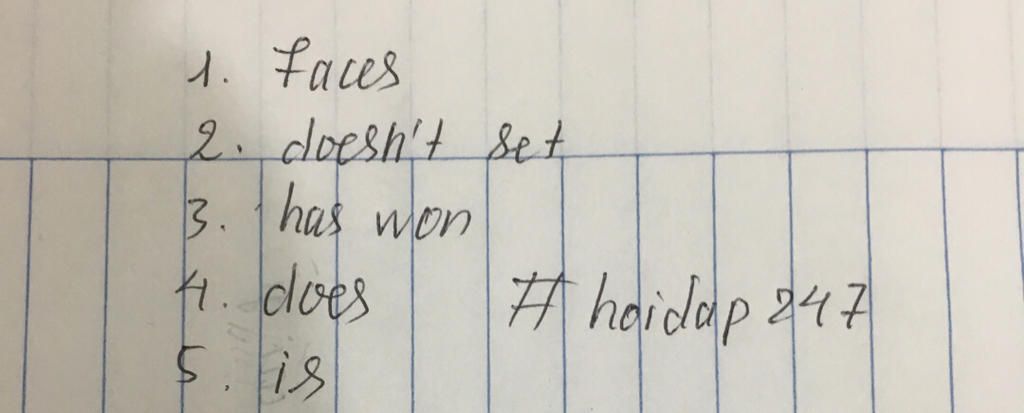 1. faces
2. doesn't set
3. has won
4. does # hoidap 247
5. is